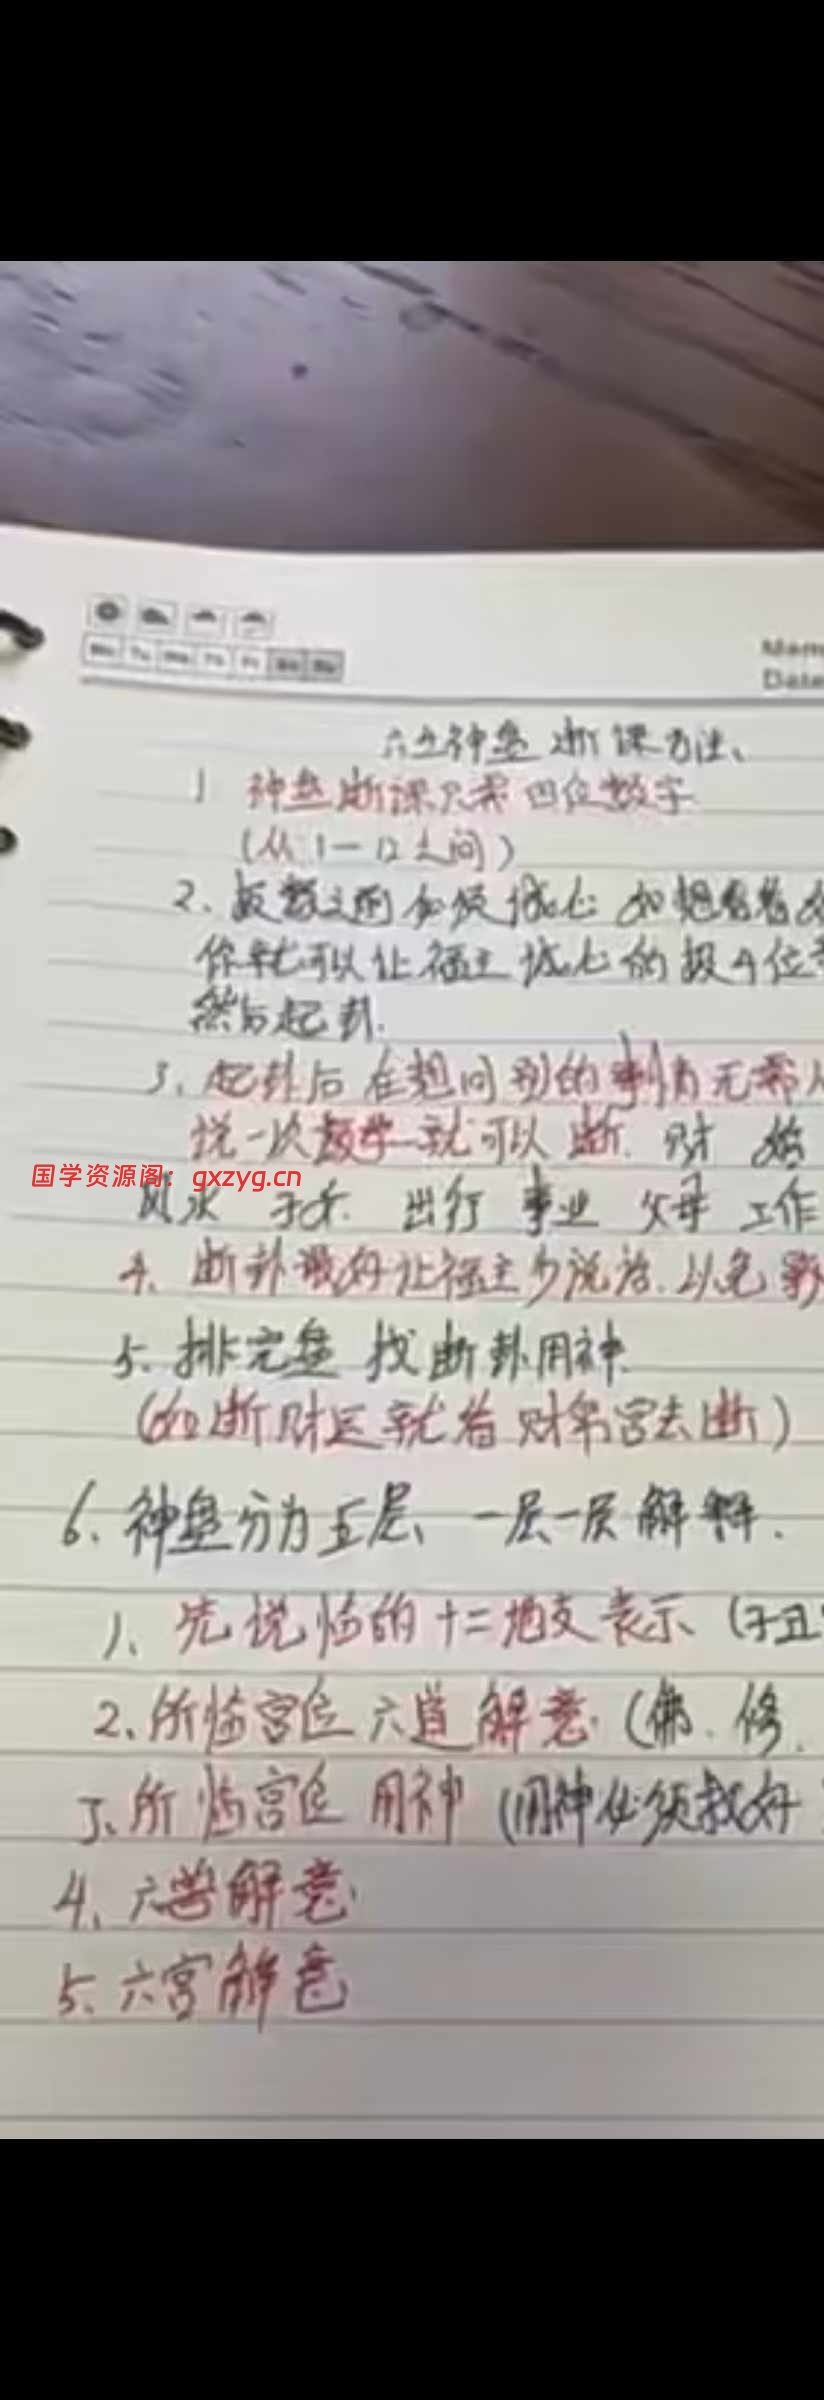 六壬神盘 断课方法、
1 神盘断课只需四位数字
(从1一12之间)
2、报数之前必须诚心 如想看看
你就可以让福主诚心的报4位
然后起卦.
3、起卦后在想问别的事情无需
说一次数字就可以断. 财
国学资源阁：gxzyg.cn
风水 子女. 出行 事业 父母 工作
4、断卦最好让福主少说话.以免影
5. 排完盘 找断卦用神.
(如断财运就看财帛宫去断)
6. 神盘分为五层、一层一层解释.
1、先说临的十二地支表示 (子丑
2、所临宫位六道解意.(佛. 修.
3、所临宫位 用神 (用神必须找好
4、六兽解意
5. 六宫解意